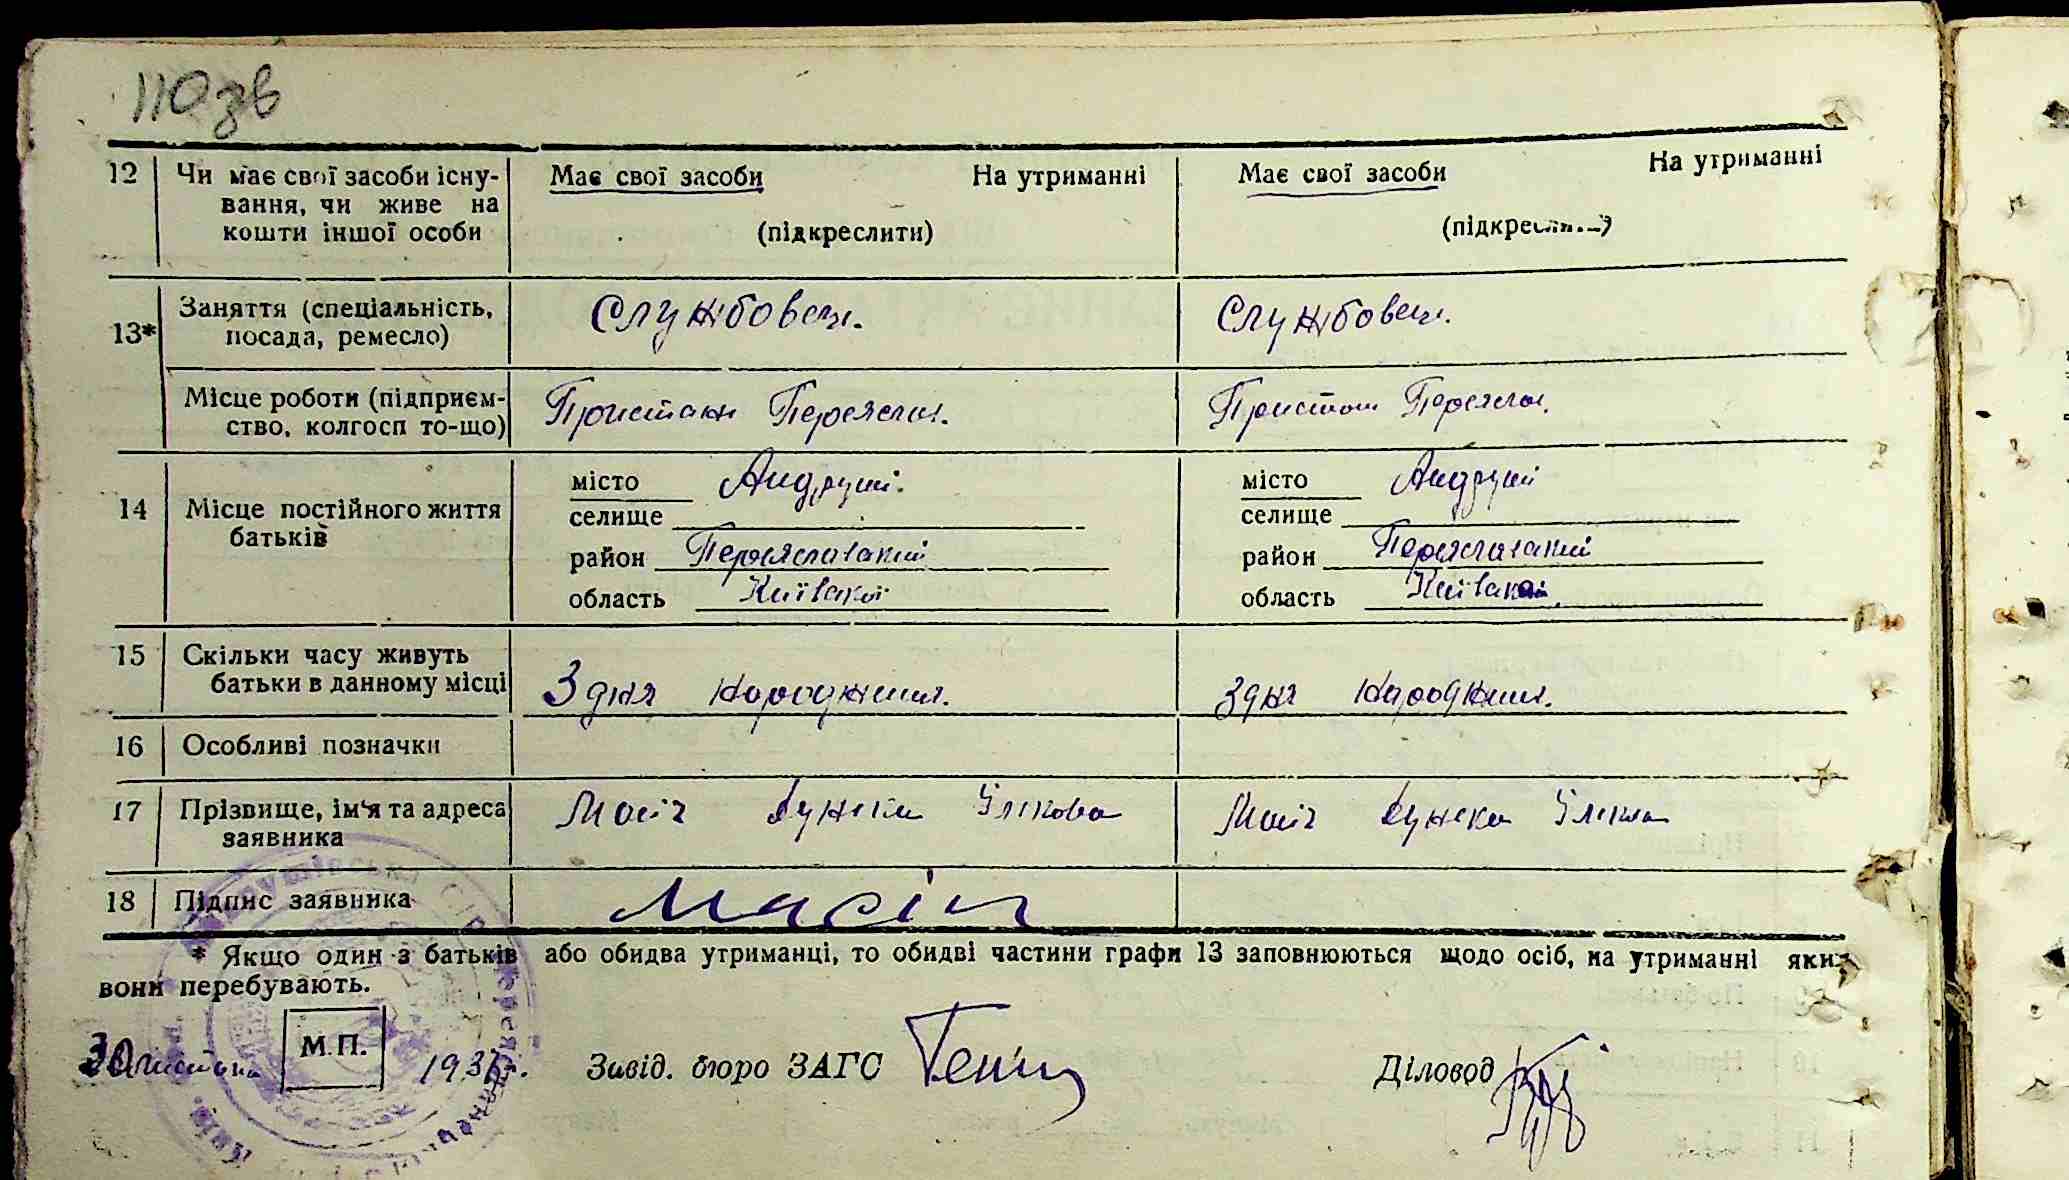 110 зв
12 Чи має свої засоби існу- Має свої засоби На утриманні Має свої засоби На утриманні
вання, чи живе на
кошти іншої особи (підкреслити) (підкреслити)
Заняття (спеціальність, Службовец. Службовец.
13* посада, ремесло)
Місце роботи (підприєм- Пристань Переяслав. Пристань Переяслав.
ство, колгосп то-що)
місто Андруши. місто Андруши
14 Місце постійного життя селище селище
батьків район Переяславский район Переяславский
область Київської область Київської
15 Скільки часу живуть
батьки в данному місці З дня народження. З дня народження.
16 Особливі позначки
17 Прізвище, ім'я та адреса
заявника
18 Підпис заявника
* Якщо один з батьків або обидва утриманці, то обидві частини графи 13 заповнюються щодо осіб, на утриманні яких
вони перебувають.
30 листопа М.П. 193 р. Завід. бюро ЗАГС Діловод